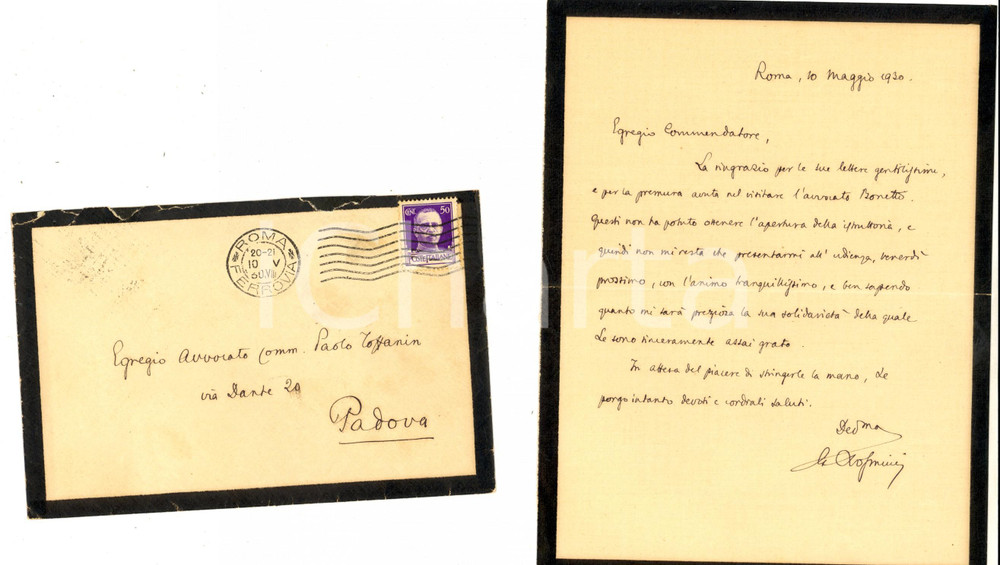 ROMA
FERROVIA
20-21
10 V
CENT. 50
POSTE ITALIANE
Egregio Avvocato Comm. Paolo Toffanin
via Dante 20
Padova
Roma, 10 Maggio 1930.
Egregio Commendatore,
La ringrazio per le sue lettere gentilissime,
e per la premura avuta nel visitare l'avvocato Bonetto.
Questi non ha potuto ottenere l'apertura della istruttoria, e
quindi non mi resta che presentarmi all'udienza, venerdì
prossimo, con l'animo tranquillissimo, e ben sapendo
quanto mi sarà preziosa la sua solidarietà della quale
Le sono sinceramente assai grato.
In attesa del piacere di stringerle la mano, Le
porgo intanto devoti e cordiali saluti.
Dev mo